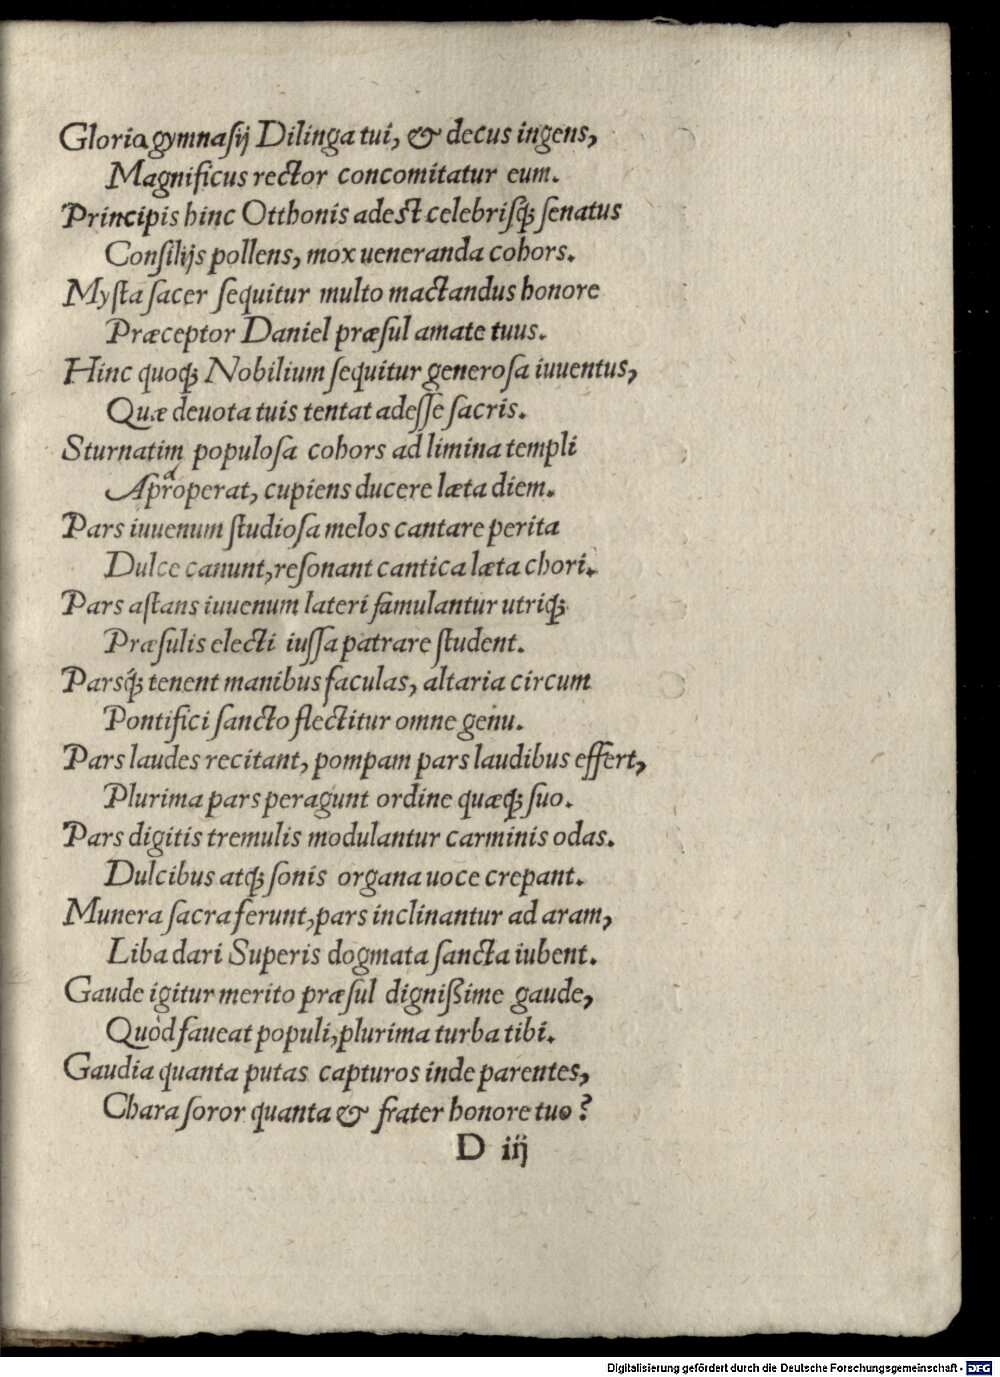 Gloria gymnaſij Dilinga tui, & decus ingens,
Magnificus rector concomitatur eum.
Principis hinc Otthonis adest celebriſq́ꝫ ſenatus
Conſilijs pollens, mox ueneranda cohors.
Myſta ſacer ſequitur multo mactandus honore
Præceptor Daniel præſul amate tuus.
Hinc quoqꝫ Nobilium ſequitur generoſa iuuentus,
Quæ deuota tuis tentat adeſſe ſacris.
Sturnatim populoſa cohors ad limina templi
Aproperat, cupiens ducere læta diem.
Pars iuuenum ſtudioſa melos cantare perita
Dulce canunt, reſonant cantica læta chori.
Pars aſtans iuuenum lateri famulantur utriqꝫ
Præſulis electi iuſſa patrare ſtudent.
Parsq́ꝫ tenent manibus faculas, altaria circum
Pontifici ſancto flectitur omne genu.
Pars laudes recitant, pompam pars laudibus effert,
Plurima pars peragunt ordine quæqꝫ ſuo.
Pars digitis tremulis modulantur carminis odas.
Dulcibus atqꝫ ſonis organa uoce crepant.
Munera ſacra ferunt, pars inclinantur ad aram,
Liba dari Superis dogmata ſancta iubent.
Gaude igitur merito præſul digniſsime gaude,
Quòd faueat populi, plurima turba tibi.
Gaudia quanta putas capturos inde parentes,
Chara ſoror quanta & frater honore tuo?
D iij
Digitalisierung gefördert durch die Deutsche Forschungsgemeinschaft - DFG